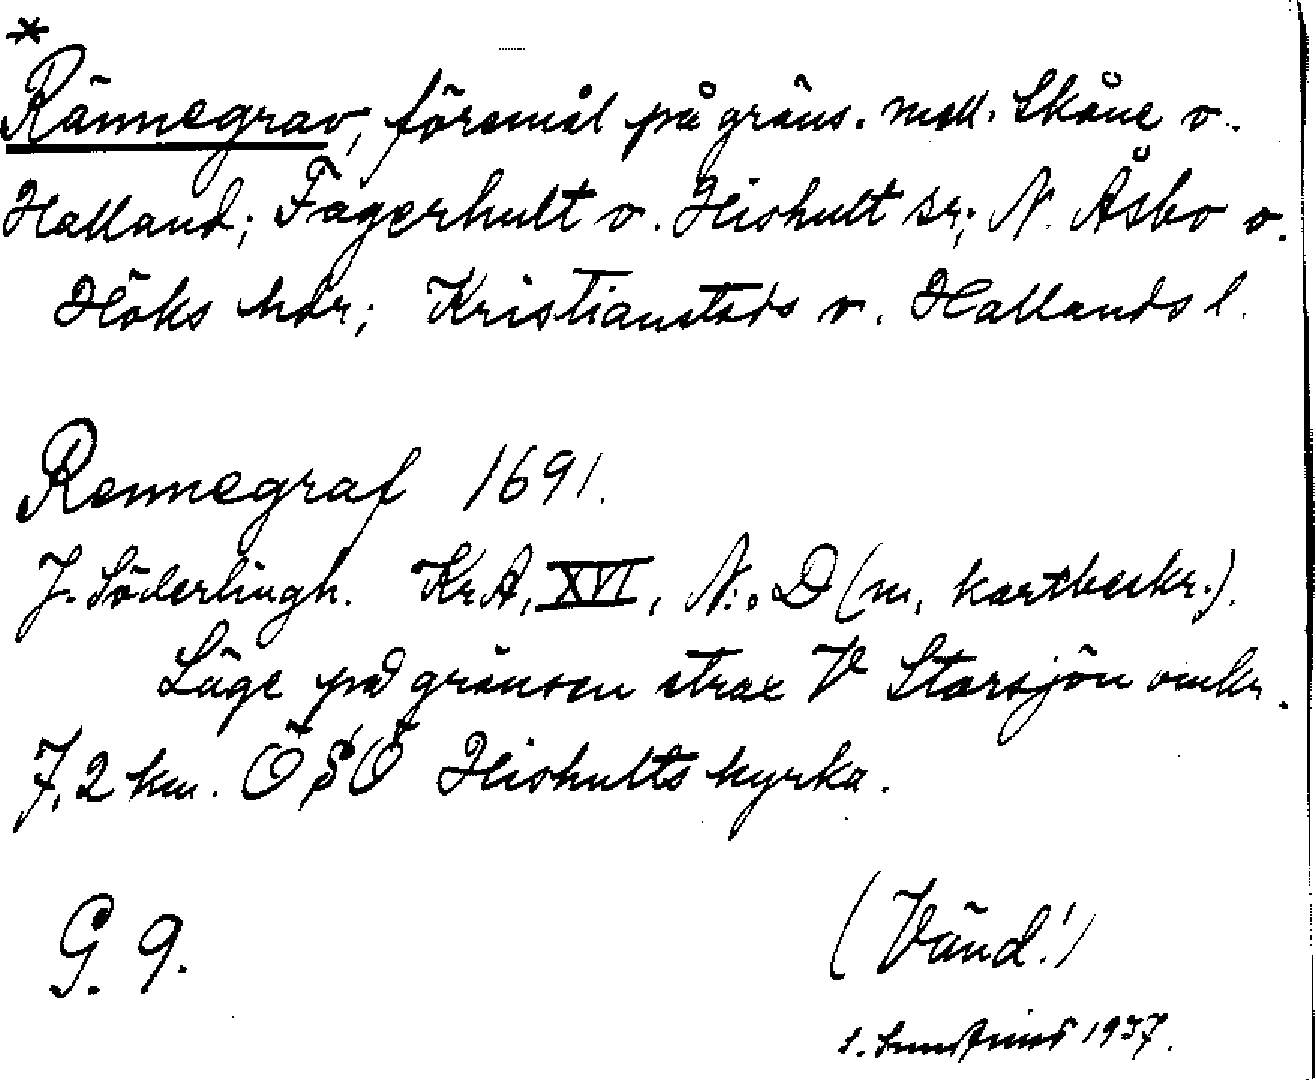 *
Rännegrav, föremål på gräns. mell. Skåne o.
Halland; Fagerhult o. Hishult sr; N. Åsbo o.
Höks hdr; Kristianstads o. Hallands l.
Rennegraf 1691.
J. Söderlingh. Kr.A, XVI, N:o D (m. kartbeskr.).
Läge på gränsen strax V Storsjön omkr.
7,2 km. ÖSÖ Hishults kyrka.
G. 9.
(Vänd!)
1937.